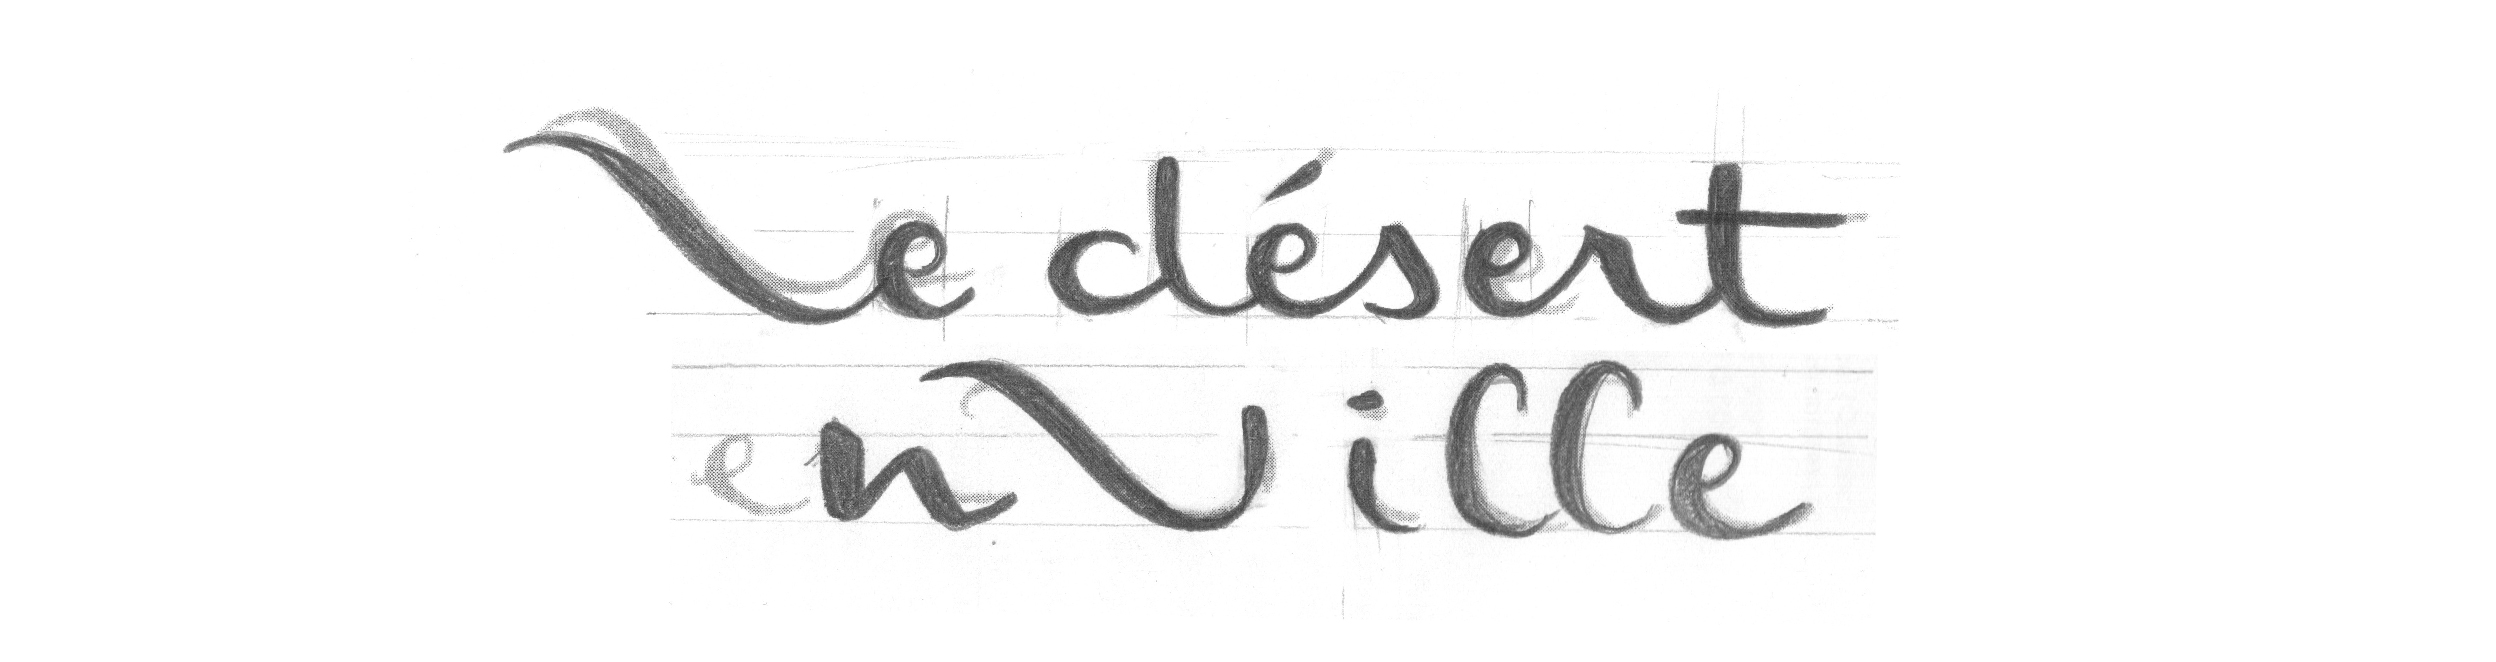 Le désert
en Ville